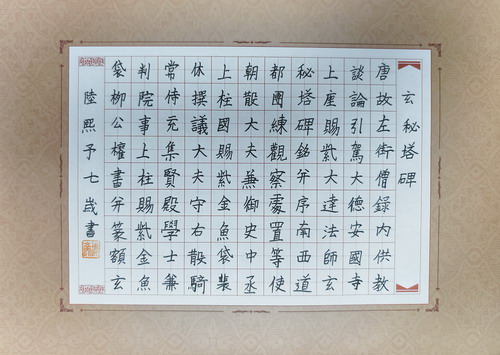 玄秘塔碑
唐故左街僧錄内供教
談論引駕大德安國寺
上座賜紫大達法師玄
秘塔碑銘并序南西道
都團練觀察處置等使
朝散大夫兼御史中丞
上柱國賜紫金魚袋裴
休撰議大夫守右散騎
常侍充集賢殿學士兼
判院事上柱賜紫金魚
袋柳公權書并篆額玄
陸熙予七歲書